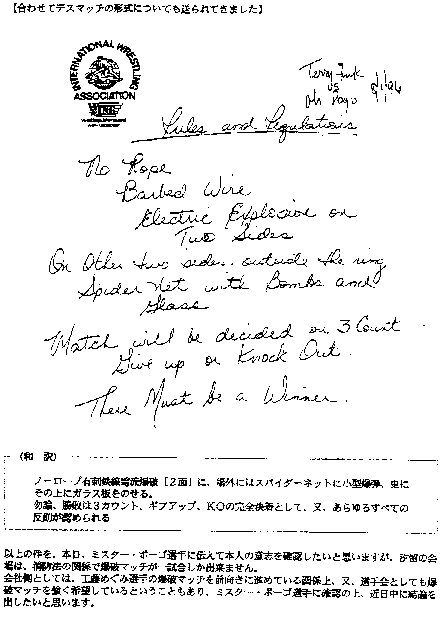 【合わせてデスマッチの形式についても送られてきました】
INTERNATIONAL WRESTLING
ASSOCIATION
Terry Funk
vs
Mr Pogo
Rules and Regulations
No Rope
Barbed Wire
Electric Explosive on
Two Sides
On Other two sides. outside the ring
Spider Net with Bombs and
Glass
Match will be decided on 3 Count
Give up or Knock Out.
There Must be a Winner.
(和 訳)
ノーロープ有刺鉄線電流爆破「2面」に、場外にはスパイダーネットに小型爆弾、更に
その上にガラス板をのせる。
勿論、勝敗は3カウント、ギブアップ、KOの完全決着として、又、あらゆるすべての
反則が認められる
以上の件を、本日、ミスター・ポーゴ選手に伝えて本人の意志を確認したいと思いますが、汐留の会
場は、消防法の関係で爆破マッチが一試合しか出来ません。
会社側としては、工藤めぐみ選手の爆破マッチを前向きに進めている関係上、又、選手会としても爆
破マッチを強く希望しているということもあり、ミスター・ポーゴ選手に確認の上、近日中に結論を
出したいと思います。